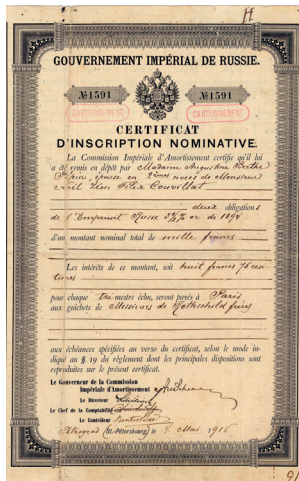 H
GOUVERNEMENT IMPÉRIAL DE RUSSIE.
№1591 №1591
CARTIONNEMENT CARTIONNEMENT
CERTIFICAT
D'INSCRIPTION NOMINATIVE.
La Commission Impériale d'Amortissement certifie qu'il lui
a été remis en dépôt par Madame Augustine
épouse en 2èmes noces de Monsieur
Léon Félix Couvillat
deux obligations
de l'Emprunt Russe 3½% or de 1894
d'un montant nominal total de mille francs
Les intérêts de ce montant, soit huit francs 75 cen-
times
pour chaque trimestre échu, seront payés à Paris
aux guichets de Messieurs de Rothschild frères
aux échéances spécifiées au verso du certificat, selon le mode in-
diqué au §. 19 du règlement dont les principales dispositions sont
reproduites sur le présent certificat.
Le Gouverneur de la Commission
Impériale d'Amortissement
Le Directeur
Le Chef de la Comptabilité
Le Contrôleur
Petrograd (St.-Pétersbourg) le 2 Mai 1916